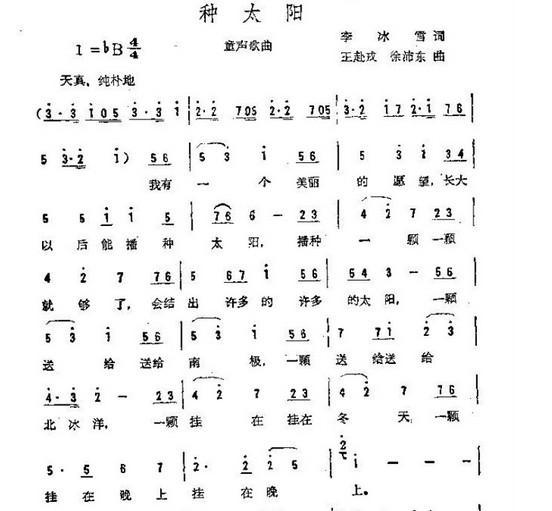 种太阳
1=♭B 4/4
童声歌曲
李冰雪词
王赴戎 徐沛东曲
天真,纯朴地
(3·3 105 3·3 1 | 2·2 705 2·2 705 | 3·3 2·2 1·1 76 |
5 3·2 1) 56 | 5 3 1 56 | 5 3 1 34 |
我有一个美丽的愿望,长大
5 5 1 1 5 | 76 6 — 23 | 4 2 7 23 |
以后能播种太阳,播种一颗一颗
4 2 7 76 | 5 67 1 56 | 54 3 — 56 |
就够了,会结出许多的许多的太阳,一颗
5 3 1 56 | 5 3 1 56 | 7 71 2 3 |
送给送给南极,一颗送给送给
4·3 2 — 23 | 4 2 7 23 | 4 2 7 76 |
北冰洋,一颗挂在挂在冬天一颗
5· 5 6 7 | 2· 2 2 5 | 2 1 — — — |
挂在晚上挂在晚上。